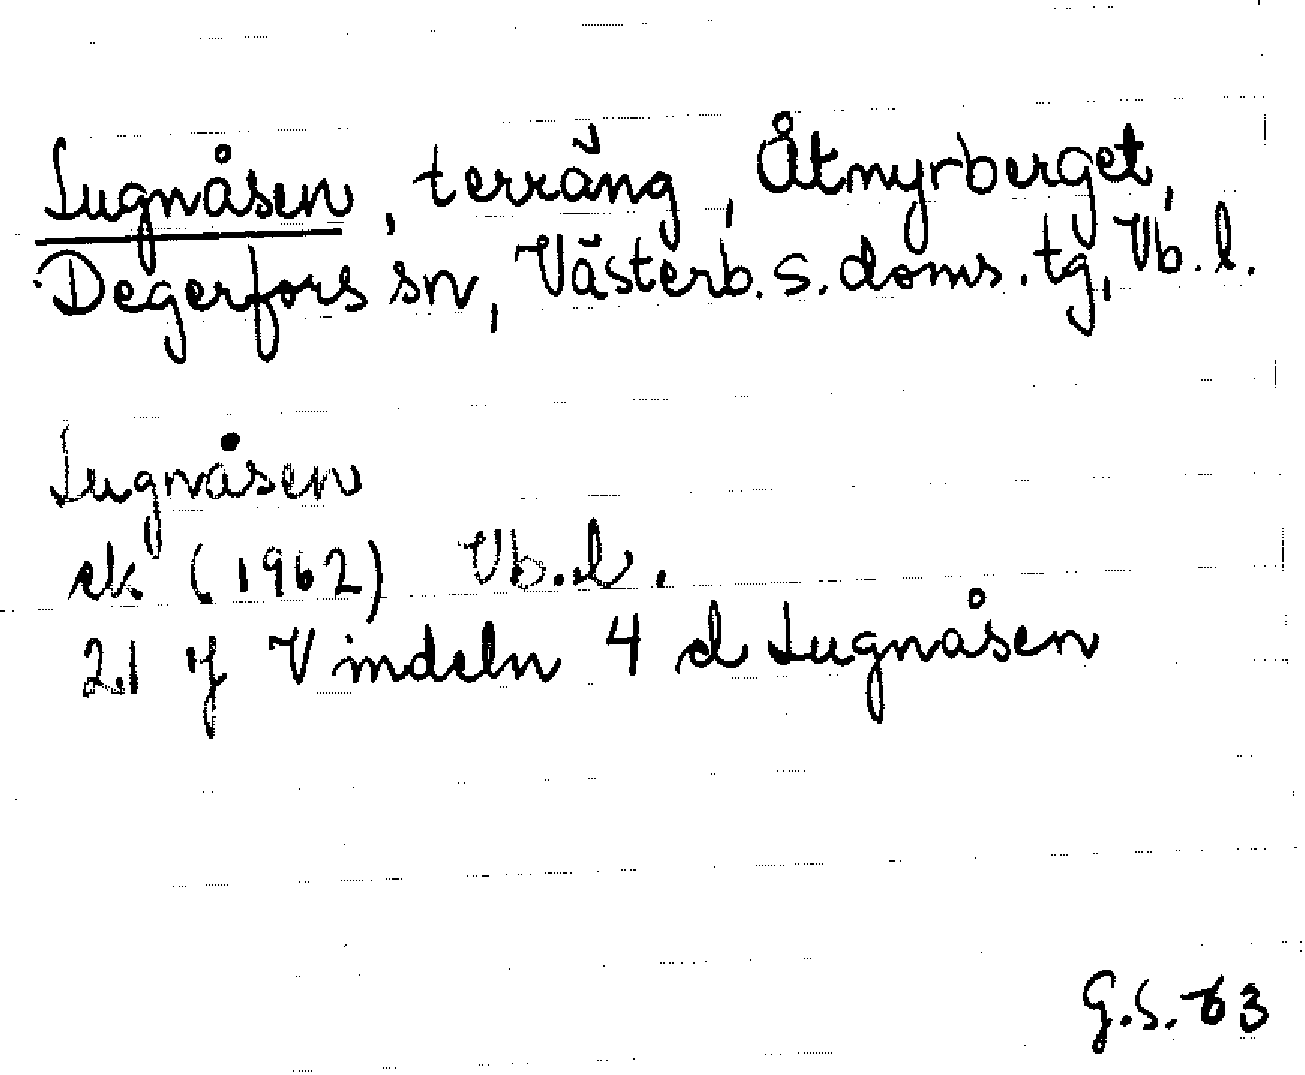 Lugnåsen, terräng, Åtmyrberget,
Degerfors sn, Västerb. s. doms. tg, Vb. l.
Lugnåsen
ek (1962) Vb. l.
21 J Vindeln 4 d Lugnåsen
G.S. 63